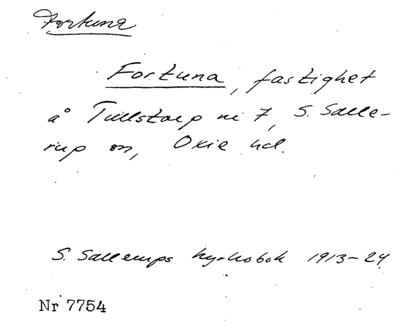 Fortuna
Fortuna, fastighet
å Tullstorp nr 7, S. Salle-
rup sn, Oxie hd.
S. Sallerups kyrkobok 1913-24
Nr 7754